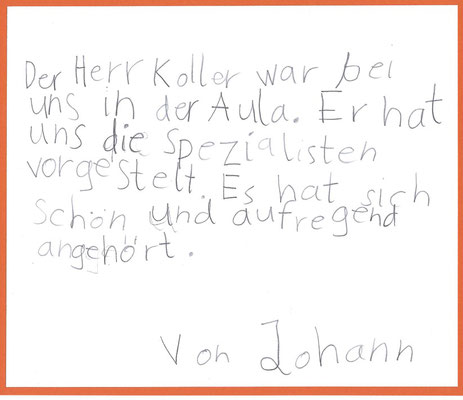 Der Herr Koller war bei
uns in der Aula. Er hat
uns die Spezialisten
vorgestelt. Es hat sich
Schön und aufregend
angehört.
Von Johann